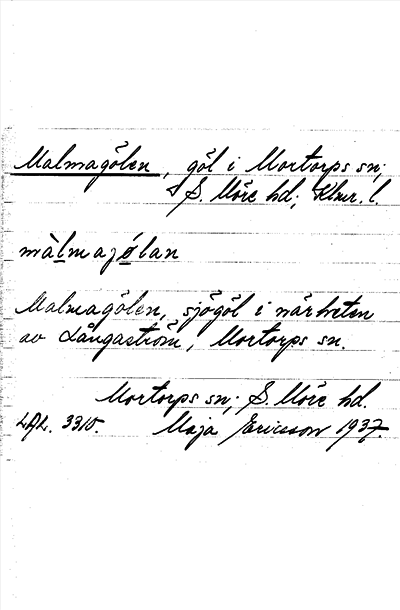 Malmagölen, göl i Mortorps sn;
S. Möre hd; Klmr. l.
màlmajólan
Malmagölen, sjögöl i närheten
av Långaström, Mortorps sn.
Mortorps sn; S. Möre hd.
LAL. 3310. Maja Ericsson 1937.